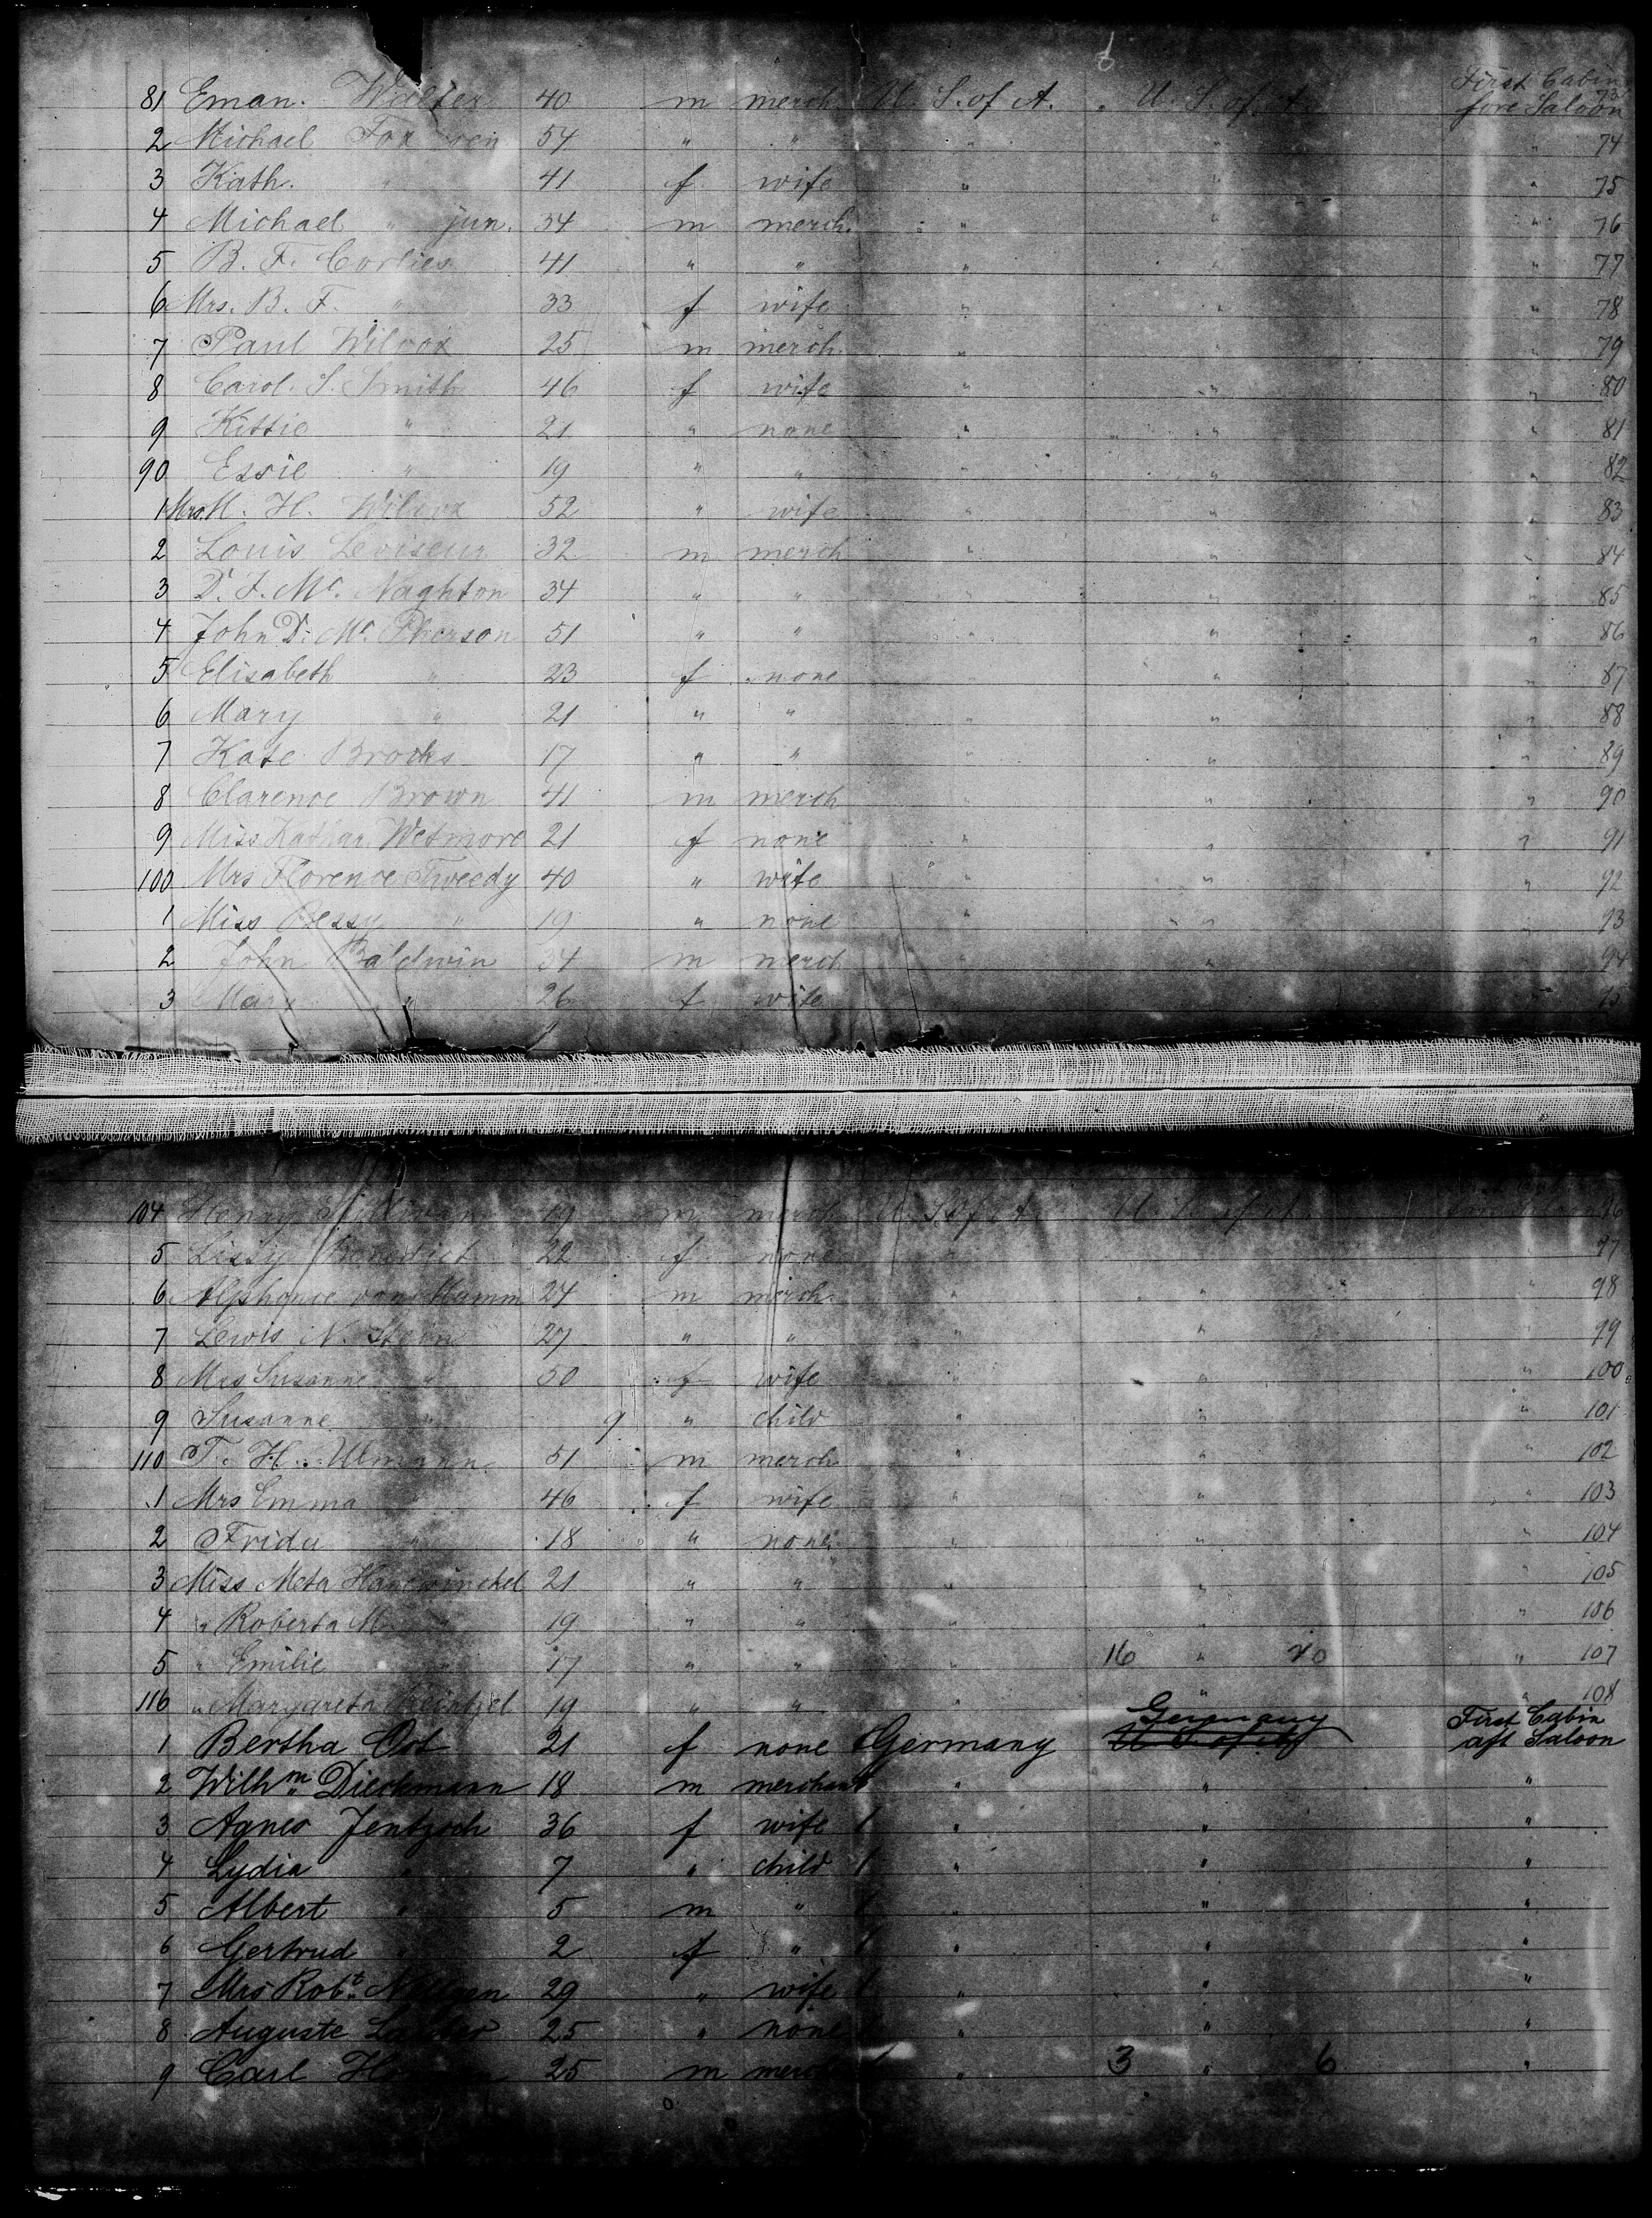 81 Eman. Walter 40 m merch. U. S. of A. U. S. of A. First Cabin fore Saloon 73
2 Michael 54 " " " " " 74
3 Kath. " 41 f wife " " " 75
4 Michael " jun. 34 m merch. " " " 76
5 B. F. Corlies 41 " " " " " 77
6 Mrs. B. F. " 33 f wife " " " 78
7 Paul Wilcox 25 m merch. " " " 79
8 Carol. S. Smith 46 f wife " " " 80
9 Kittie " 21 " none " " " 81
90 Essie " 19 " " " " " 82
1 Mrs. M. H. Wilcox 52 " wife " " " 83
2 Louis Leviseur 32 m merch " " " 84
3 D. F. Mc. Naghton 34 " " " " " 85
4 John D. Mc. Pherson 51 " " " " " 86
5 Elisabeth " 23 f none " " " 87
6 Mary " 21 " " " " " 88
7 Kate Brooks 17 " " " " " 89
8 Clarence Brown 41 m merch " " " 90
9 Miss Kathar. Wetmore 21 f none " " " 91
100 Mrs Florence Tweedy 40 " wife " " " 92
1 Miss Bessy " 19 " none " " " 93
2 John Baldwin 34 m merch " " " 94
3 Mary " 26 f wife " " " 95
104 Henry 19 m merch U. S. of A. U. S. of A. 96
5 Lissy Benedict 22 f none " " " 97
6 Alphonse von Hamm 24 m merch. " " " 98
7 Lewis N. Stern 27 " " " " " 99
8 Mrs Susanne " 50 f wife " " " 100
9 Susanne " 9 " child " " " 101
110 T. H. Ulmann 51 m merch " " " 102
1 Mrs Emma " 46 f wife " " " 103
2 Frida " 18 " none " " " 104
3 Miss Meta Hanewinckel 21 " " " " " 105
4 " Roberta M. 19 " " " " " 106
5 " Emilie 17 " " " 16 " 20 " 107
116 " Margareta 19 " " " " " 108
1 Bertha Ost 21 f none Germany Germany U. S. of A. First Cabin aft Saloon
2 Wilhm Dieckmann 18 m merchant " " "
3 Agnes Jentzsch 36 f wife " " "
4 Lydia " 7 " child " " "
5 Albert " 5 m " " " "
6 Gertrud " 2 f " " " "
7 Mrs Robt. 29 " wife " " "
8 Auguste 25 " none " " "
9 Carl 25 m merch " 3 " 6 "